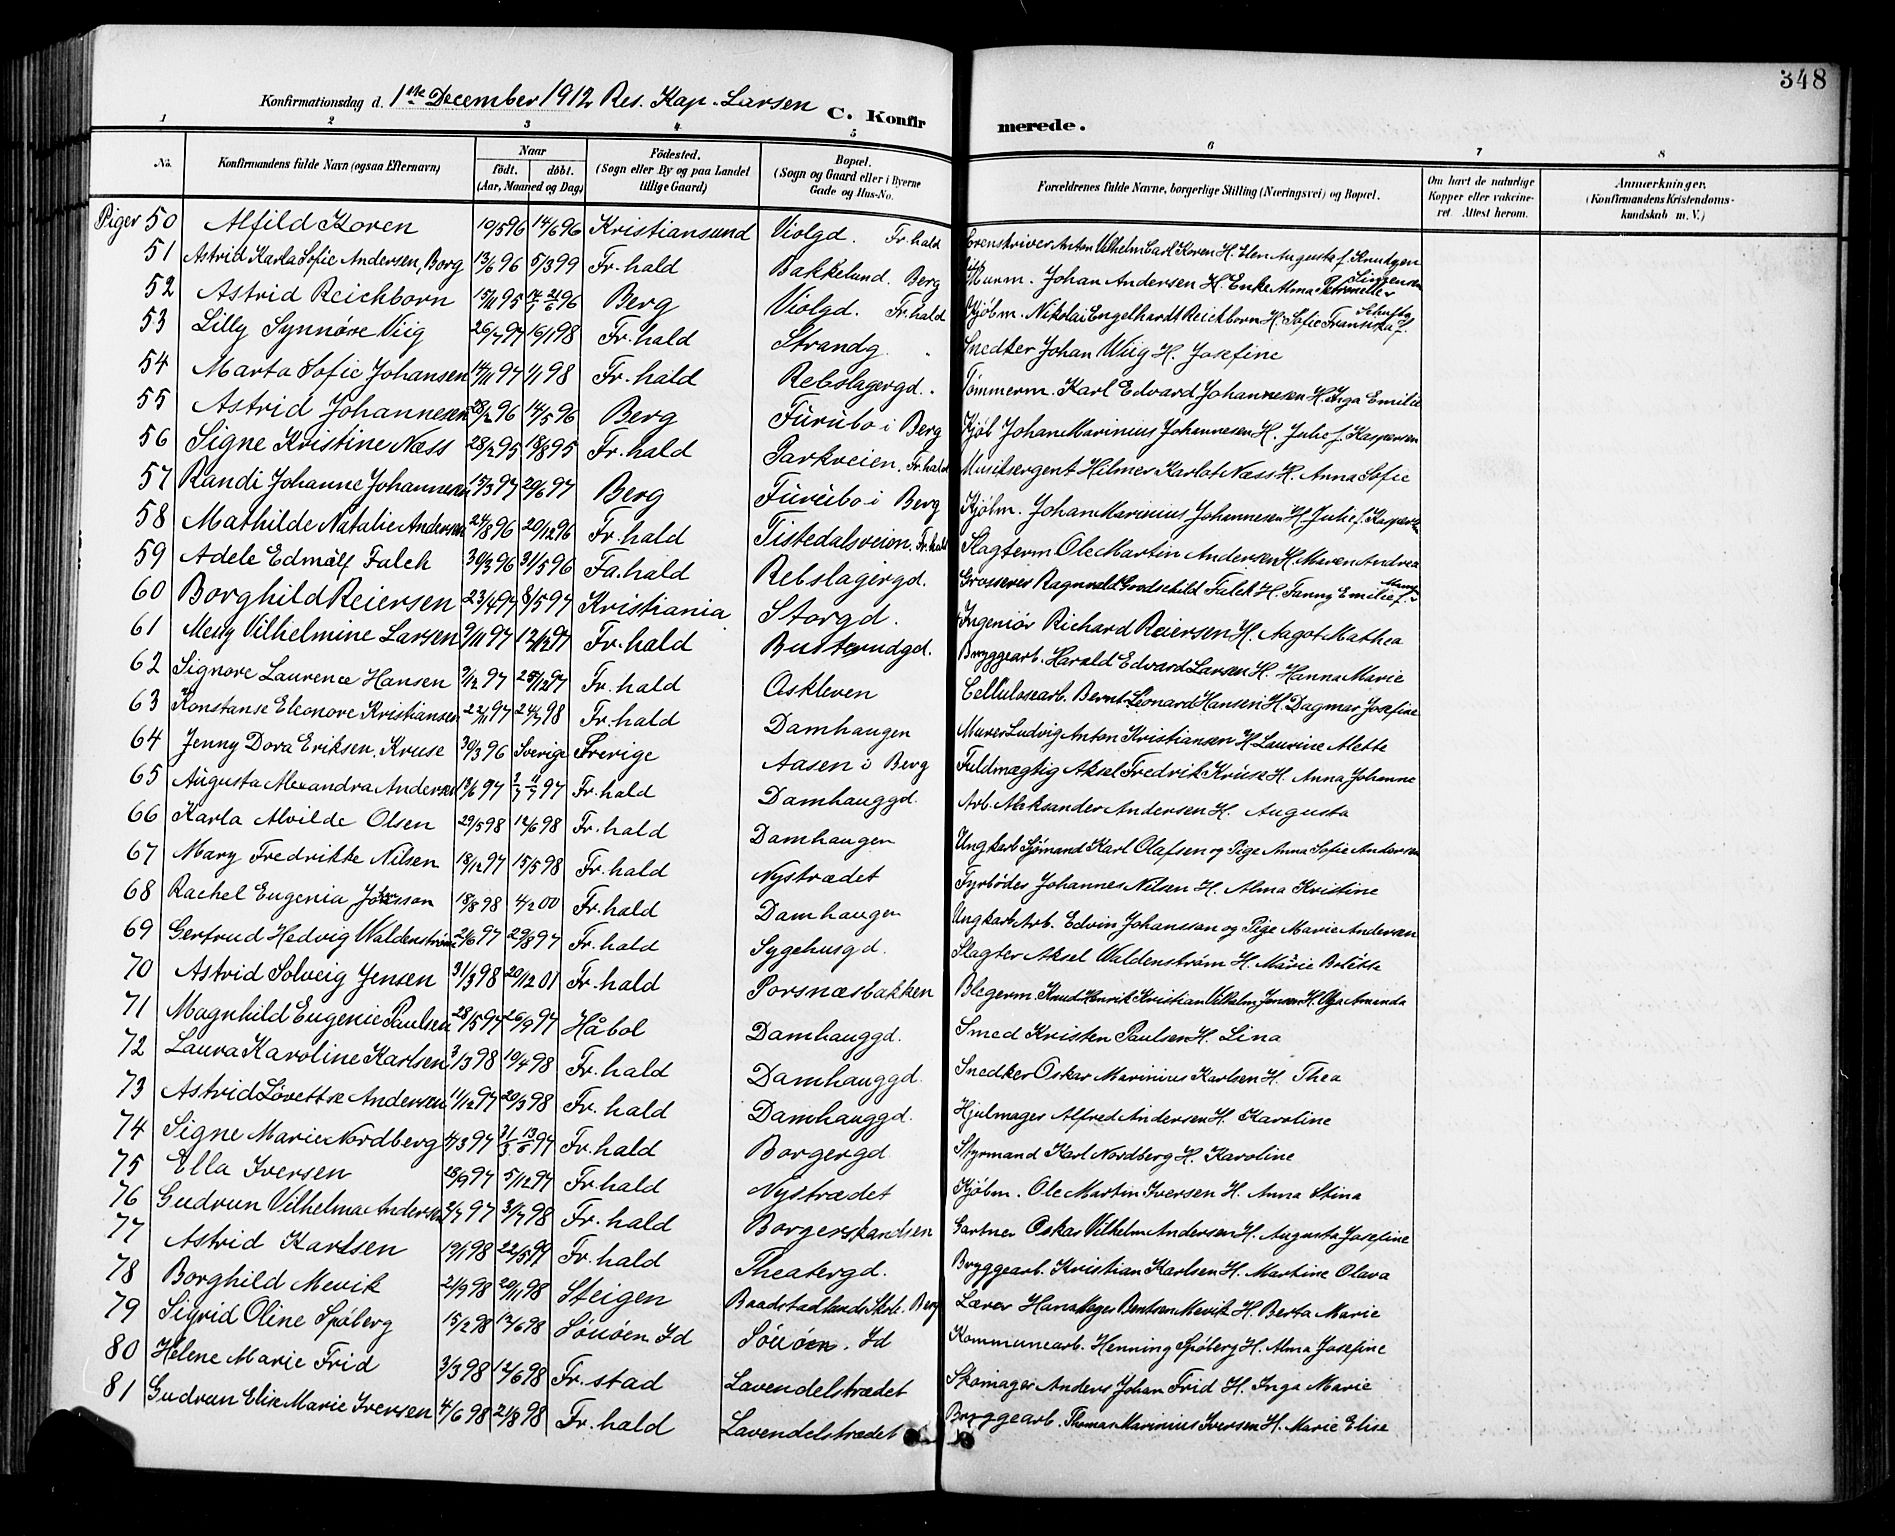 348
Konfirmationsdag d. 1ste December 1912 Res. Kap. Larsen C. Konfirmerede.
1 2 3 4 5 6 7 8
No. Konfirmandens fulde Navn (ogsaa Efternavn) Naar födt. döbt. (Aar, Maaned og Dag) Födested. (Sogn eller By og paa Landet tillige Gaard) Bopæl. (Sogn og Gaard eller i Byerne Gade og Hus-No. Forældrenes fulde Navne, borgerlige Stilling (Næringsvei) og Bopæl. Om havt de naturlige Kopper eller vakcineret. Attest herom. Anmærkninger. (Konfirmandens Kristendomskundskab m. V.)
Piger 50 Alfild Koren 19/5 96 14/6 96 Kristiansund Violgd. Fr.hald Sorenskriver Anton Vilhelm Carl Koren H. Elen Augusta f. Knutzen
51 Astrid Karla Sofie Andersen, Borg 13/6 96 5/3 99 Fr.hald Bakkelund. Berg Murm. Johan Andersen H. Enke Alma Petronelle
52 Astrid Reichborn 15/11 95 96 Berg Violgd. Fr.hald Kjøbm. Nikolai Engelhardt Reichborn H. Sofie Fransiska f.
53 Lilly Synnøve Viig 26/7 97 16/1 98 Fr.hald Strandg. " Snedker Johan Wiig H. Josefine
54 Marta Sofie Johansen 14/11 97 98 Fr.hald Rebslagergd. " Tømmerm. Karl Edvard Johannesen H. Inga Emilie
55 Astrid Johannesen 28/2 96 14/5 96 Berg Furubo i Berg Kjøb Johan Marinius Johannesen H. Julie f. Kaspersen
56 Signe Kristine Næss 28/2 95 18/8 95 Fr.hald Parkveien. Fr.hald Musiksergent Hilmer Karlot Næss H. Anna Sofie
57 Randi Johanne Johannesen 15/3 97 20/6 97 Berg Furubo i Berg Kjøbm. Johan Marinius Johannesen H. Julie f. Kaspersen
58 Mathilde Natalie Andersen 24/8 96 20/12 96 Fr.hald Tistedalsveien. Fr.hald Slagterm Ole Martin Andersen H. Maren Andrea
59 Adele Edmølf Falch 30/3 96 31/5 96 Fa.hald Rebslagergd. Grosserer Ragnvald Godschild Falch H. Fanny Emilie f.
60 Borghild Reiersen 23/4 97 8/5 97 Kristiania Storgd. Ingeniör Richard Reiersen H. Aagot Mathea
61 Meny Vilhelmine Larsen 9/11 97 12/12 97 Fr.hald Busterudgd. Bryggearb. Harald Edvard Larsen H. Hanna Marie
62 Signore Laurence Hansen 9/12 97 25/12 97 Fr.hald Oskleven Cellulosearb. Bernt Leonard Hansen H. Dagmar Josefine
63 Konstanse Eleonore Kristiansen 22/11 97 24/7 98 Fr.hald Damhaugen Murer Ludvig Anton Kristiansen H. Laurine Alette
64 Jenny Dora Eriksen. Kruse 30/3 96 Sverige Sverige Aasen i Berg Fuldmægtig Aksel Fredrik Kruse H. Anna Johanne
65 Augusta Alexandra Andersen 13/6 97 97 Fr.hald Damhauggd. Arb. Aleksander Andersen H. Augusta
66 Karla Alvilde Olsen 29/5 98 12/6 98 Fr.hald Damhaugen Ungkarl Sjømand Karl Olafsen og Pige Anna Sofie Andersen
67 Mary Fredrikke Nilsen 18/12 97 15/5 98 Fr.hald Nystrædet Fyrbøder Johannes Nilsen H. Alma Kristine
68 Rachel Eugenia 18/8 98 4/2 00 Fr.hald Damhaugen Ungkarl Arb. Edvin Johansson og Pige Marie Andersen
69 Gertrud Hedvig Waldenström 21/6 97 29/8 97 Fr.hald Sygehusgd. Slagter Aksel Waldenstrøm H. Marie Bolette
70 Astrid Solveig Jensen 31/3 98 20/12 01 Fr.hald Porsnæsbakken Blegerm. Knud Henrik Kristian Vilhelm Jensen H. Olga Amanda
71 Magnhild Eugenie Paulsen 28/5 97 26/9 97 Håbol Damhauggd. Smed Kristen Paulsen H. Lina
72 Laura Karoline Karlsen 3/3 98 10/4 98 Fr.hald Damhauggd. Snedker Oskar Marinius Karlsen H. Thea
73 Astrid Lovettse Andersen 11/12 97 20/3 98 Fr.hald Damhauggd. Hjulmager Alfred Andersen H. Karoline
74 Signe Marie Nordberg 4/3 97 97 Fr.hald Borgergd Styrmand Karl Nordberg H. Karoline
75 Ella Iversen 25/9 97 5/12 97 Fr.hald Nystrædet Kjøbm. Ole Martin Iversen H. Anna Stina
76 Gudrun Vilhelma Andersen 2/7 97 31/7 98 Fr.hald Borgerskandsen Gartner Oskar Vilhelm Andersen H. Augusta Josefine
77 Astrid Karlsen 19/1 98 22/5 99 Fr.hald Theatergd. Bryggearb. Kristian Karlsen H. Martine Olava
78 Borghild Mevik 2/9 98 20/11 98 Steigen Baadstadlunds Skole. Berg Lærer Hans Meyer Bentsen Mevik H. Berta Marie
79 Sigrid Oline Spøberg 15/2 98 12/6 98 Id Id Kommunearb. Henning Spøberg H. Alma Josefine
80 Helene Marie Frid 3/3 98 12/6 98 Fr.stad Lavendelstrædet Skomager Anders Johan Frid H. Inga Marie
81 Gudrun Elise Marie Iversen 4/6 98 21/8 98 Fr.hald Lavendelstrædet Bryggearb. Thomas Marinius Iversen H. Marie Elise